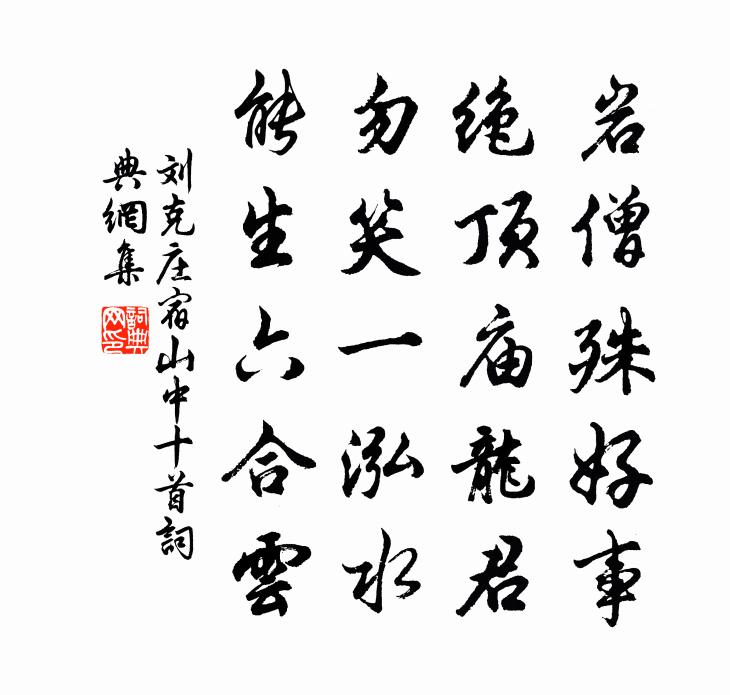 岩僧殊好事
绝顶庙龍君
勿笑一泓水
能生六合雲
刘克庄宿山中十首詞
典網集
詞典
网印